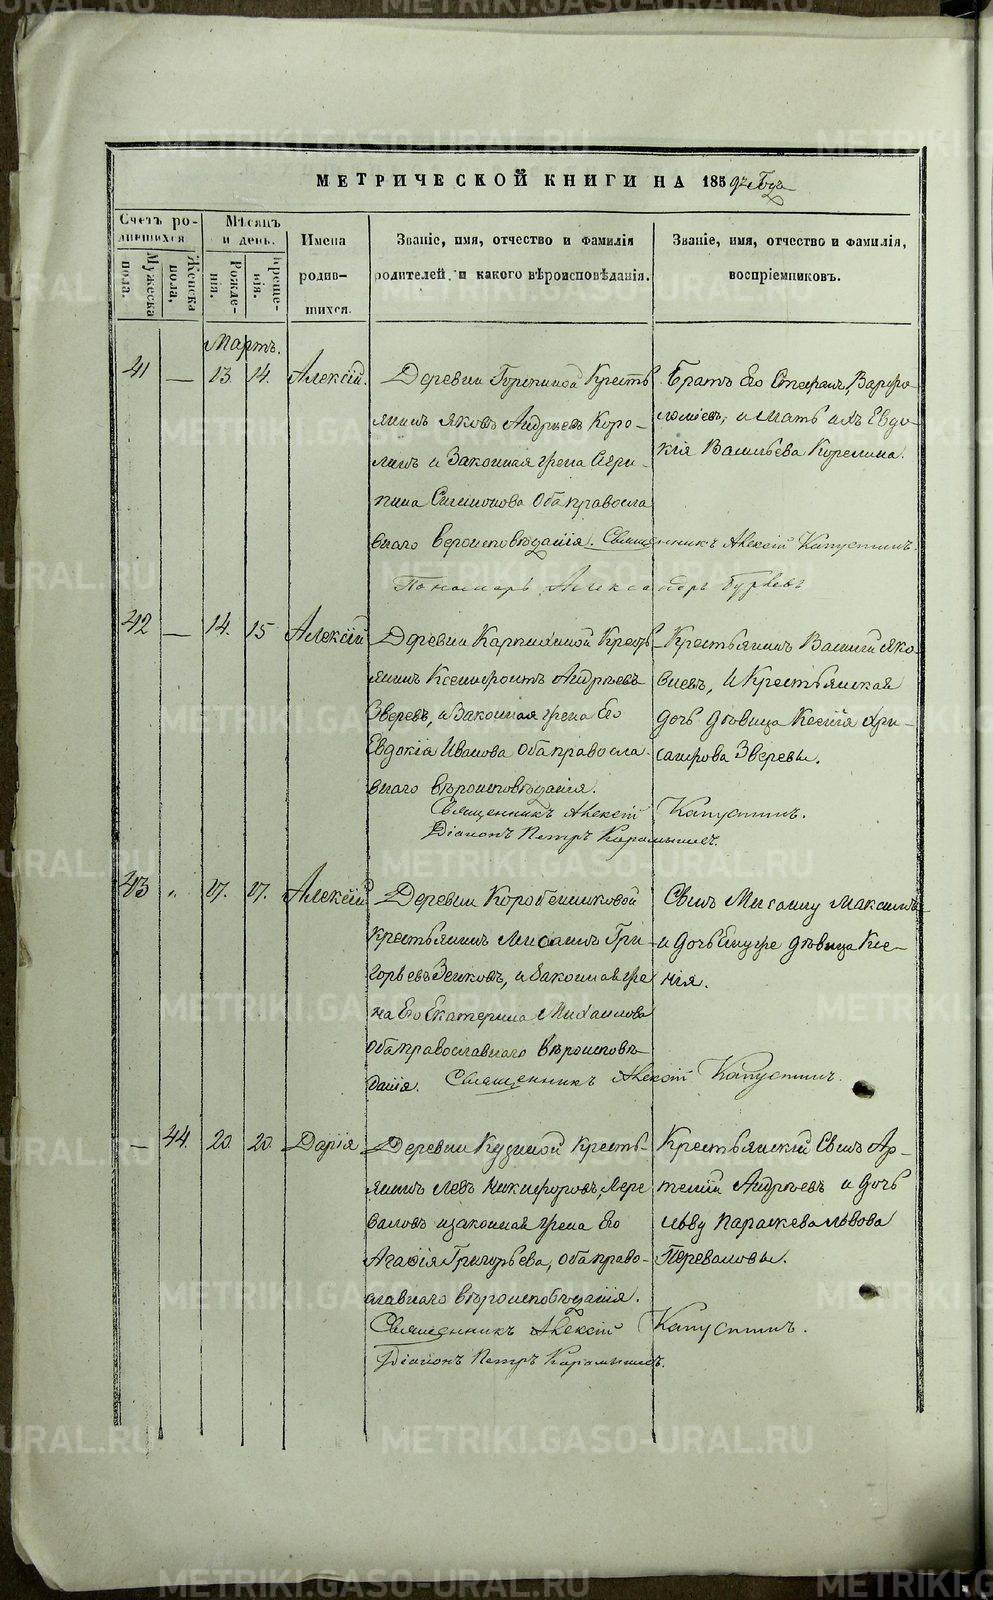 МЕТРИЧЕСКОЙ КНИГИ НА 1859й Годъ
Счетъ ро-
дившихся
Мужеска пола.
Женска пола,
Мѣсяцъ
и день.
Рожде-
нія.
Креще-
нія.
Имена
родив-
шихся.
Званіе, имя, отчество и фамилія
родителей, и какого вѣроисповѣданія.
Званіе, имя, отчество и фамилія,
воспріемниковъ.
Мартъ.
41 — 13 14. Алексій.
Деревни Крестъ
янинъ Яковъ Андреевъ Коро-
линъ и Законная жена Агри-
пина Симионова Оба православ
внаго Вероисповѣданія. Священникъ Алексій Капустинъ.
Пономарь Александръ Гурьевъ
Братъ Его Стефанъ, Варфо-
ломіевъ, и Мать ихъ Евдо-
кія Васильева Корелина.
42 — 14. 15 Алексій
Деревни Карпихиной Крестъ
янинъ Ксенифонтъ Андреевъ
Зверевъ, и Законная жена Его
Евдокія Иванова оба правосла-
внаго вѣроисповѣданія.
Священникъ Алексій Капустинъ.
Діаконъ Петръ Карамышевъ.
Крестьянинъ Василій Яко-
влевъ, и Крестьянская
дочь дѣвица Ксенія Хри-
санфова Зверевы.
43 „ 17. 17. Алексій
Деревни Коробейниковой
Крестьянинъ Мисаилъ Гри-
горьевъ Зенковъ, и Законная же
на Его Екатерина Михаилова
оба православнаго вѣроисповѣ-
данія. Священникъ Алексій Капустинъ.
Сынъ Мисаилу Максимъ
и дочь Ему же дѣвица Ксе-
нія.
— 44. 20 20. Дарія
Деревни Кузиной Кресть-
янинъ Левъ Никифоровъ, Пере
валовъ и законная жена Его
Агафія Григорьева, оба право-
славнаго вѣроисповѣданія.
Священникъ Алексій Капустинъ.
Діаконъ Петръ Карамышевъ.
Крестьянскій Сынъ Ар-
темій Андреевъ и дочь
Льву Параскева Львова
Переваловы.
METRIKI.GASO-URAL.RU